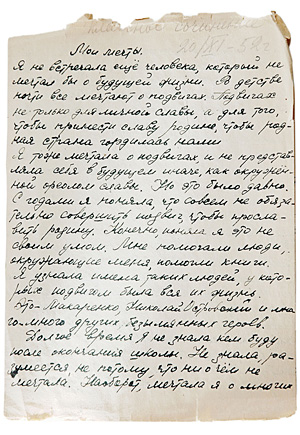 20/XI-59 г.
Мои мечты.
Я не встречала ещё человека, который не
мечтал бы о будущей жизни. В детстве
почти все мечтают о подвигах. Подвигах
не только для личной славы, а для того,
чтобы принести славу Родине, чтобы род-
ная страна гордилась нами
Я тоже мечтала о подвигах и не представ-
ляла себя в будущем иначе как окружён-
ной ореолом славы. Но это было давно.
С годами я поняла, что совсем не обяза-
тельно совершить подвиг, чтобы просла-
вить родину. Конечно поняла я это не
своим умом. Мне помогали люди,
окружающие меня, помогли книги.
Я узнала имена таких людей у кото-
рых подвигом была вся их жизнь.
Это Макаренко, Николай Островский и мно-
го много других, безымянных героев.
Долгое время я не знала кем буду
после окончания школы. Не знала, ра-
зумеется не потому, что ни о чём не
мечтала. Наоборот, мечтала я о многих